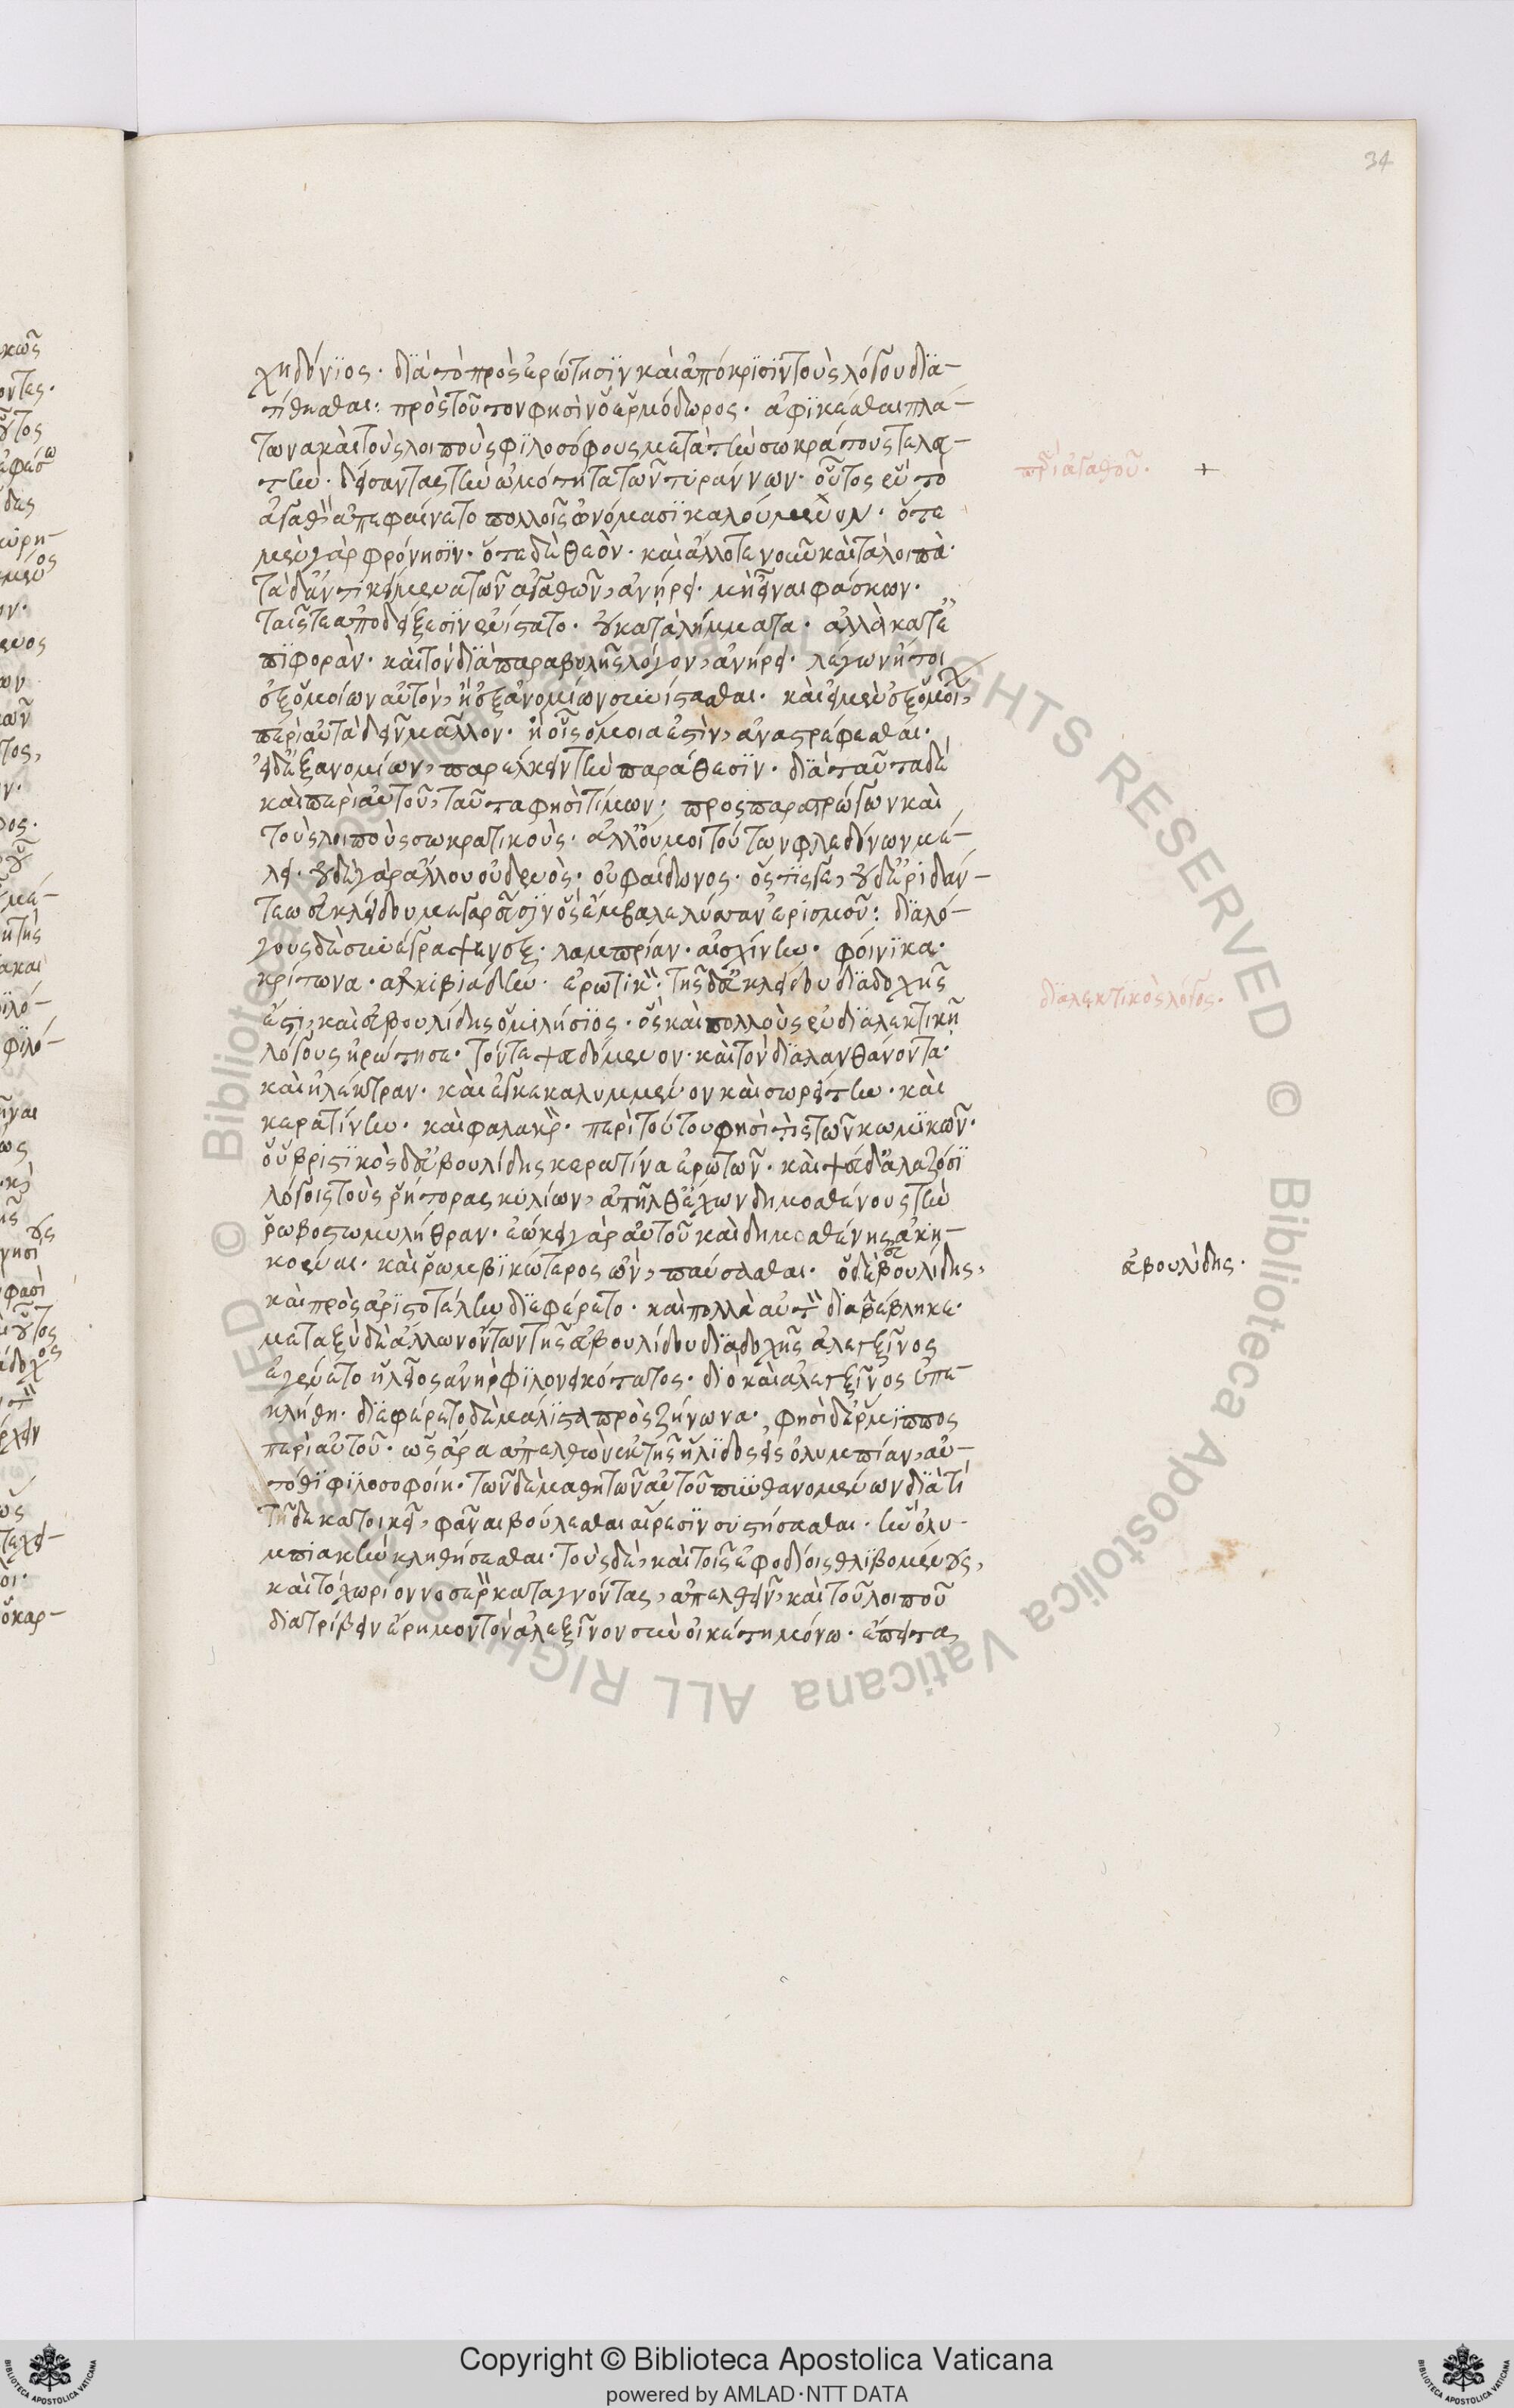 34
χηδόνϊος· δϊὰ τὸ πρὸς ἐρώτησϊν καὶ ἀπόκρϊσϊν τοὺς λόγου δϊα-
τίθησθαι: πρὸς τοῦτον φησὶν ὁ ἑρμόδωρος· ἀφϊκέσθαι πλά-
τωνα καὶ τοὺς λοιποὺς φϊλοσόφους μετὰ τὴν σωκράτους τελευ-
τήν· δείσαντας τὴν ὠμότητα τῶν τυράννων· οὗτος ἓν τὸ
ἀγαθὸν ἀπεφαίνετο πολλοῖς ὀνόμασϊ καλούμενον· ὅτε
μὲν γὰρ φρόνησϊν· ὅτε δὲ θεὸν· καὶ ἄλλοτε νοῦν καὶ τὰ λοιπὰ·
τὰ δ' ἀντικείμενα τῶν ἀγαθῶν, ἀνήρει· μὴ εἶναι φάσκων·
ταῖς τε ἀποδείξεσϊν ἐνίστατο· οὐ κατὰ λήμματα· ἀλλὰ κατ' ἐ
πϊφορὰν· καὶ τὸν δϊὰ παραβολῆς λόγον, ἀνήρει· λέγων ἤτοι
ἐξ ὁμοίων αὐτὸν, ἢ ἐξ ἀνομίων συνίστασθαι· καὶ εἰ μὲν ἐξ ὁμοίων,
περὶ αὐτὰ δεῖν μᾶλλον· ἢ οἷς ὅμοια ἐστὶν, ἀναστρέφεσθαι·
εἰ δ' ἐξ ανομίων, παρέλκειν τὴν παράθεσϊν· δϊὰ ταῦτα δὲ
καὶ περὶ αὐτοῦ, ταῦτα φησὶ τίμων· προσπαρατρώγων καὶ
τοὺς λοιποὺς σωκρατικοὺς· ἀλλ' οὔ μοι τούτων φλεδόνων μέ-
λει· οὐδὲ γὰρ ἄλλου οὐδενὸς· οὐ φαίδωνος· ὅς τϊς γε, οὐδ' ἐριδάν-
τεω εὐκλείδου μεγαρεῦσϊν ὃς ἔμβαλε λύσσαν ἐρισμοῦ: δϊαλό-
γους δὲ συνέγραψεν ἓξ· λαμπρίαν· αἰσχίνην· φοίνϊκα·
κρίτωνα· αλκιβϊάδην· ἐρωτϊκὸν· τῆς δ' εὐκλείδου δϊαδοχῆς
ἐστὶ, καὶ εὐβουλίδης ὁ μιλήσϊος· ὃς καὶ πολλοὺς ἐν δϊαλεκτικῇ
λόγους ἠρώτησε· τόν τε ψευδόμενον· καὶ τὸν δϊαλανθάνοντα·
καὶ ἠλέκτραν· καὶ ἐγκεκαλυμμένον καὶ σωρείτην· καὶ
κερατίνην· καὶ φαλακρὸν· περὶ τούτου φησί τϊς τῶν κωμϊκῶν·
οὑβριστϊκὸς δ' εὐβουλίδης κερατίνα ἐρωτῶν· καὶ ψευδαλαζόσϊ
λόγοις τοὺς ῥήτορας κυλίων, ἀπῆλθ' ἔχων δημοσθένους τὴν
ῥωβοστωμυλήθραν· ἐῴκει γὰρ αὐτοῦ καὶ δημοσθένης ἀκη-
κοέναι· καὶ ῥωμβϊκώτερος ὢν, παύσασθαι· ὁ δὲ εὐβουλίδης,
καὶ πρὸς ἀρϊστοτέλην δϊεφέρετο· καὶ πολλὰ αὐτὸν δϊαβέβληκε·
μεταξὺ δὲ ἄλλων ὄντων τῆς εὐβουλίδου δϊαδοχῆς ἀλεξῖνος
ἐγένετο ἠλεῖος ἀνὴρ φϊλονεικότατος· δϊὸ καὶ ἐλεγξῖνος ἐπε-
κλήθη· δϊεφέρετο δὲ μάλϊστα πρὸς ζήνωνα·, φησὶ δ' ἕρμϊππος
περὶ αὐτοῦ· ὡς ἄρα ἀπελθὼν ἐκ τῆς ἤλϊδος εἰς ὀλυμπίαν, αὐ-
τόθϊ φϊλοσοφοίη· τῶν δὲ μαθητῶν αὐτοῦ πυνθανομένων δϊὰ τί
τῇδε κατοικεῖ, φᾶναι βούλεσθαι αἵρεσϊν συστήσασθαι· ἣν ὀλυ-
μπϊακὴν κληθήσεσθαι· τοὺς δὲ, καὶ τοῖς ἐφοδίοις θλϊβομένους,
καὶ τὸ χωρίον νοσερὸν καταγνόντας, ἀπελθεῖν, καὶ τοῦ λοιποῦ
δϊατρίβειν ἔρημον τὸν ἀλεξῖνον σὺν οἰκέτῃ μόνῳ· ἔπειτα
περὶ ἀγαθοῦ· +
δϊαλεκτικὸς λόγος·
εὐβουλίδης·
Copyright © Biblioteca Apostolica Vaticana
powered by AMLAD·NTT DATA